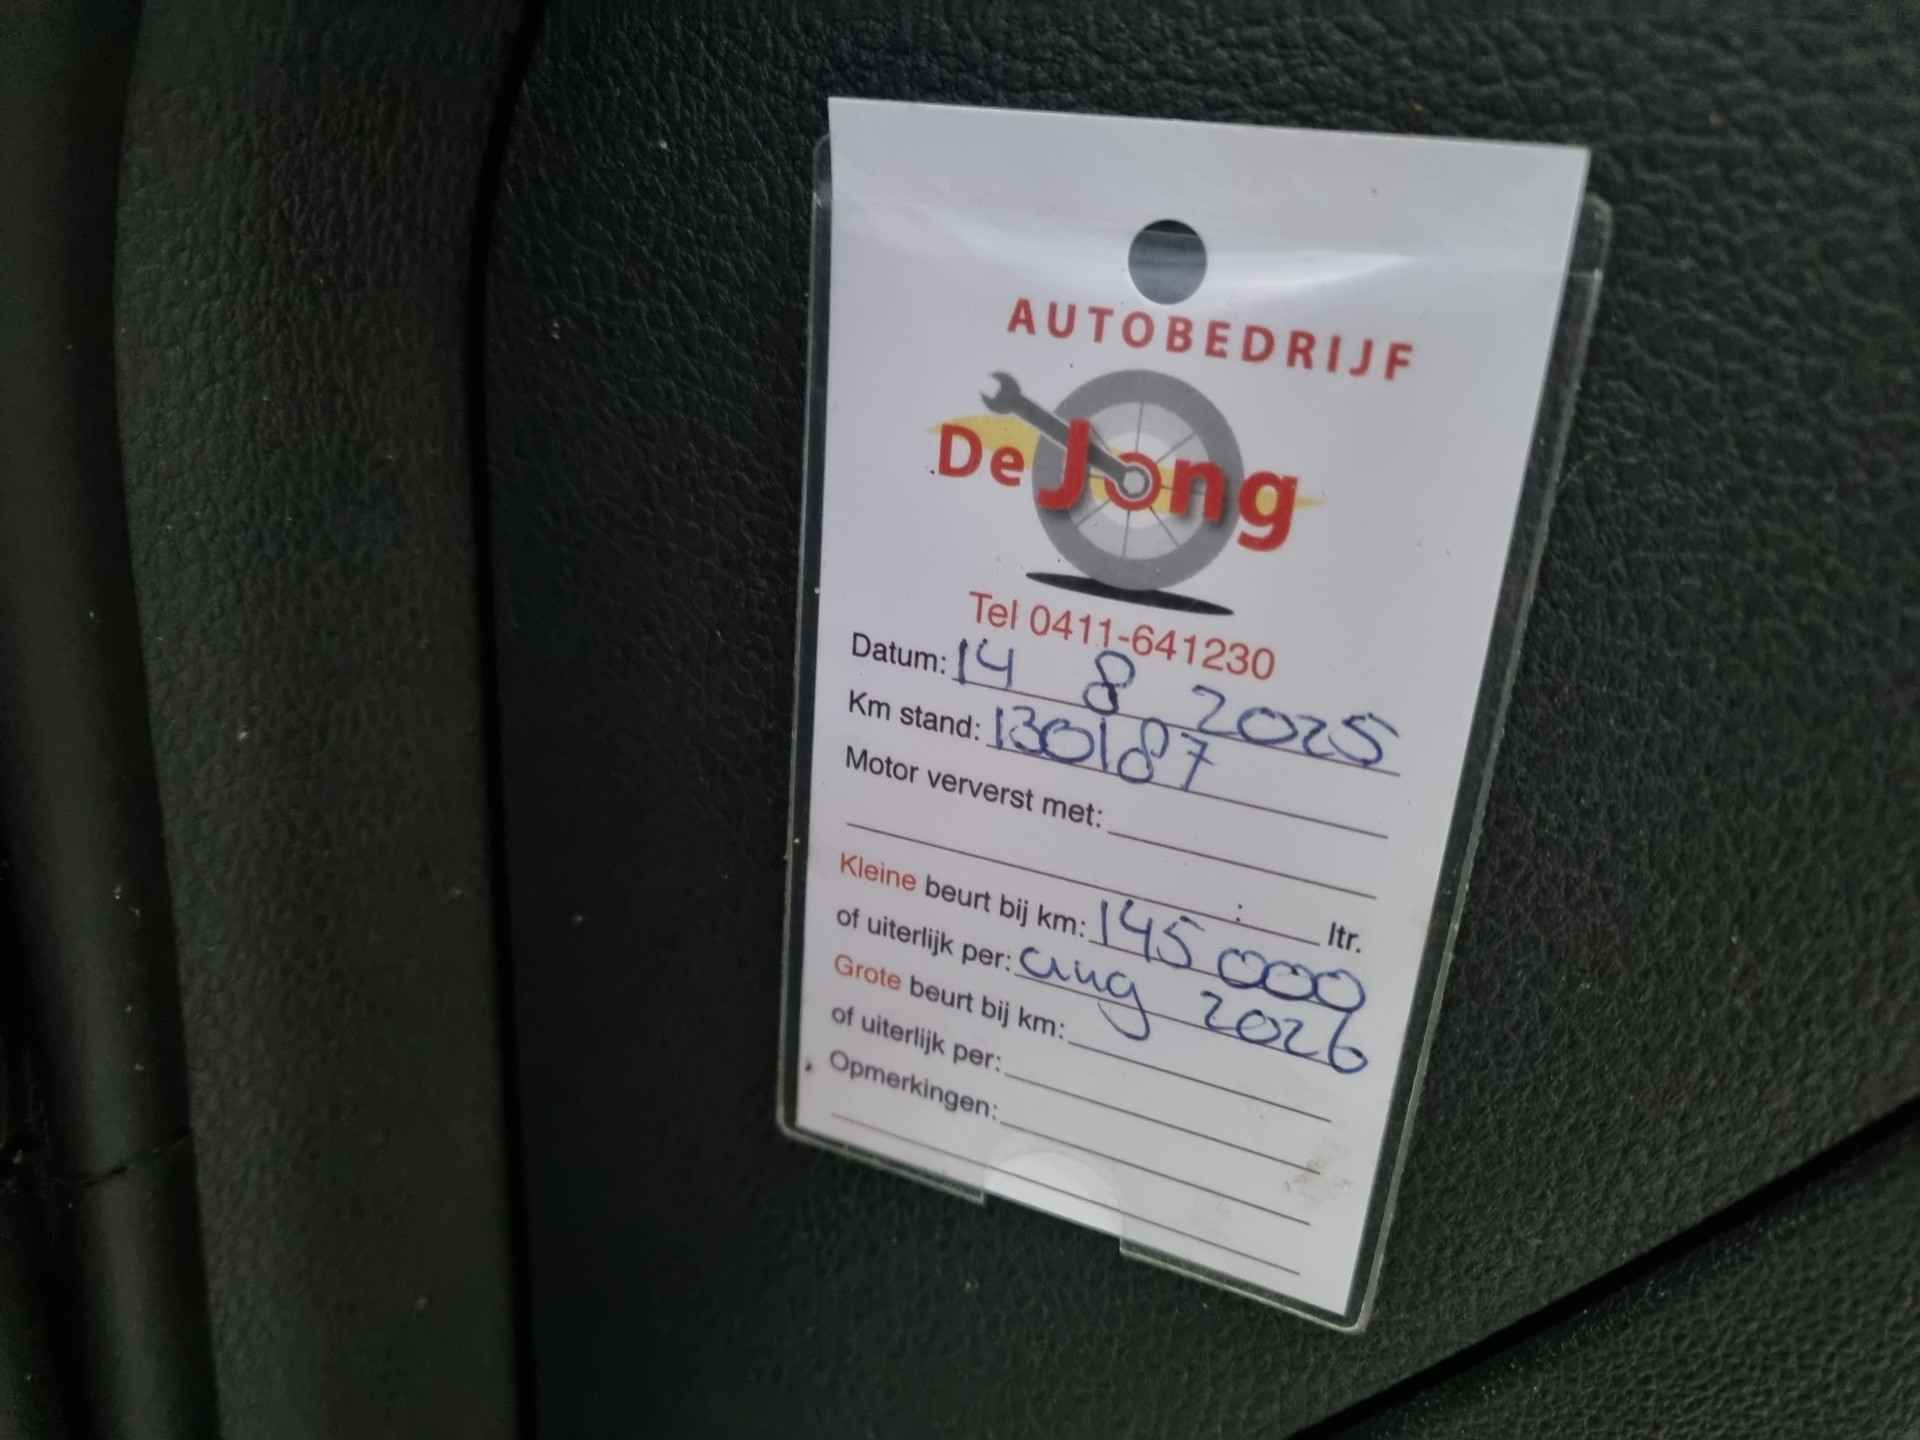 AUTOBEDRIJF
De Jong
Tel 0411-641230
Datum: 14 8 2025
Km stand: 130187
Motor ververst met:
: ltr.
Kleine beurt bij km: 145 000
of uiterlijk per: aug 2026
Grote beurt bij km:
of uiterlijk per:
Opmerkingen: